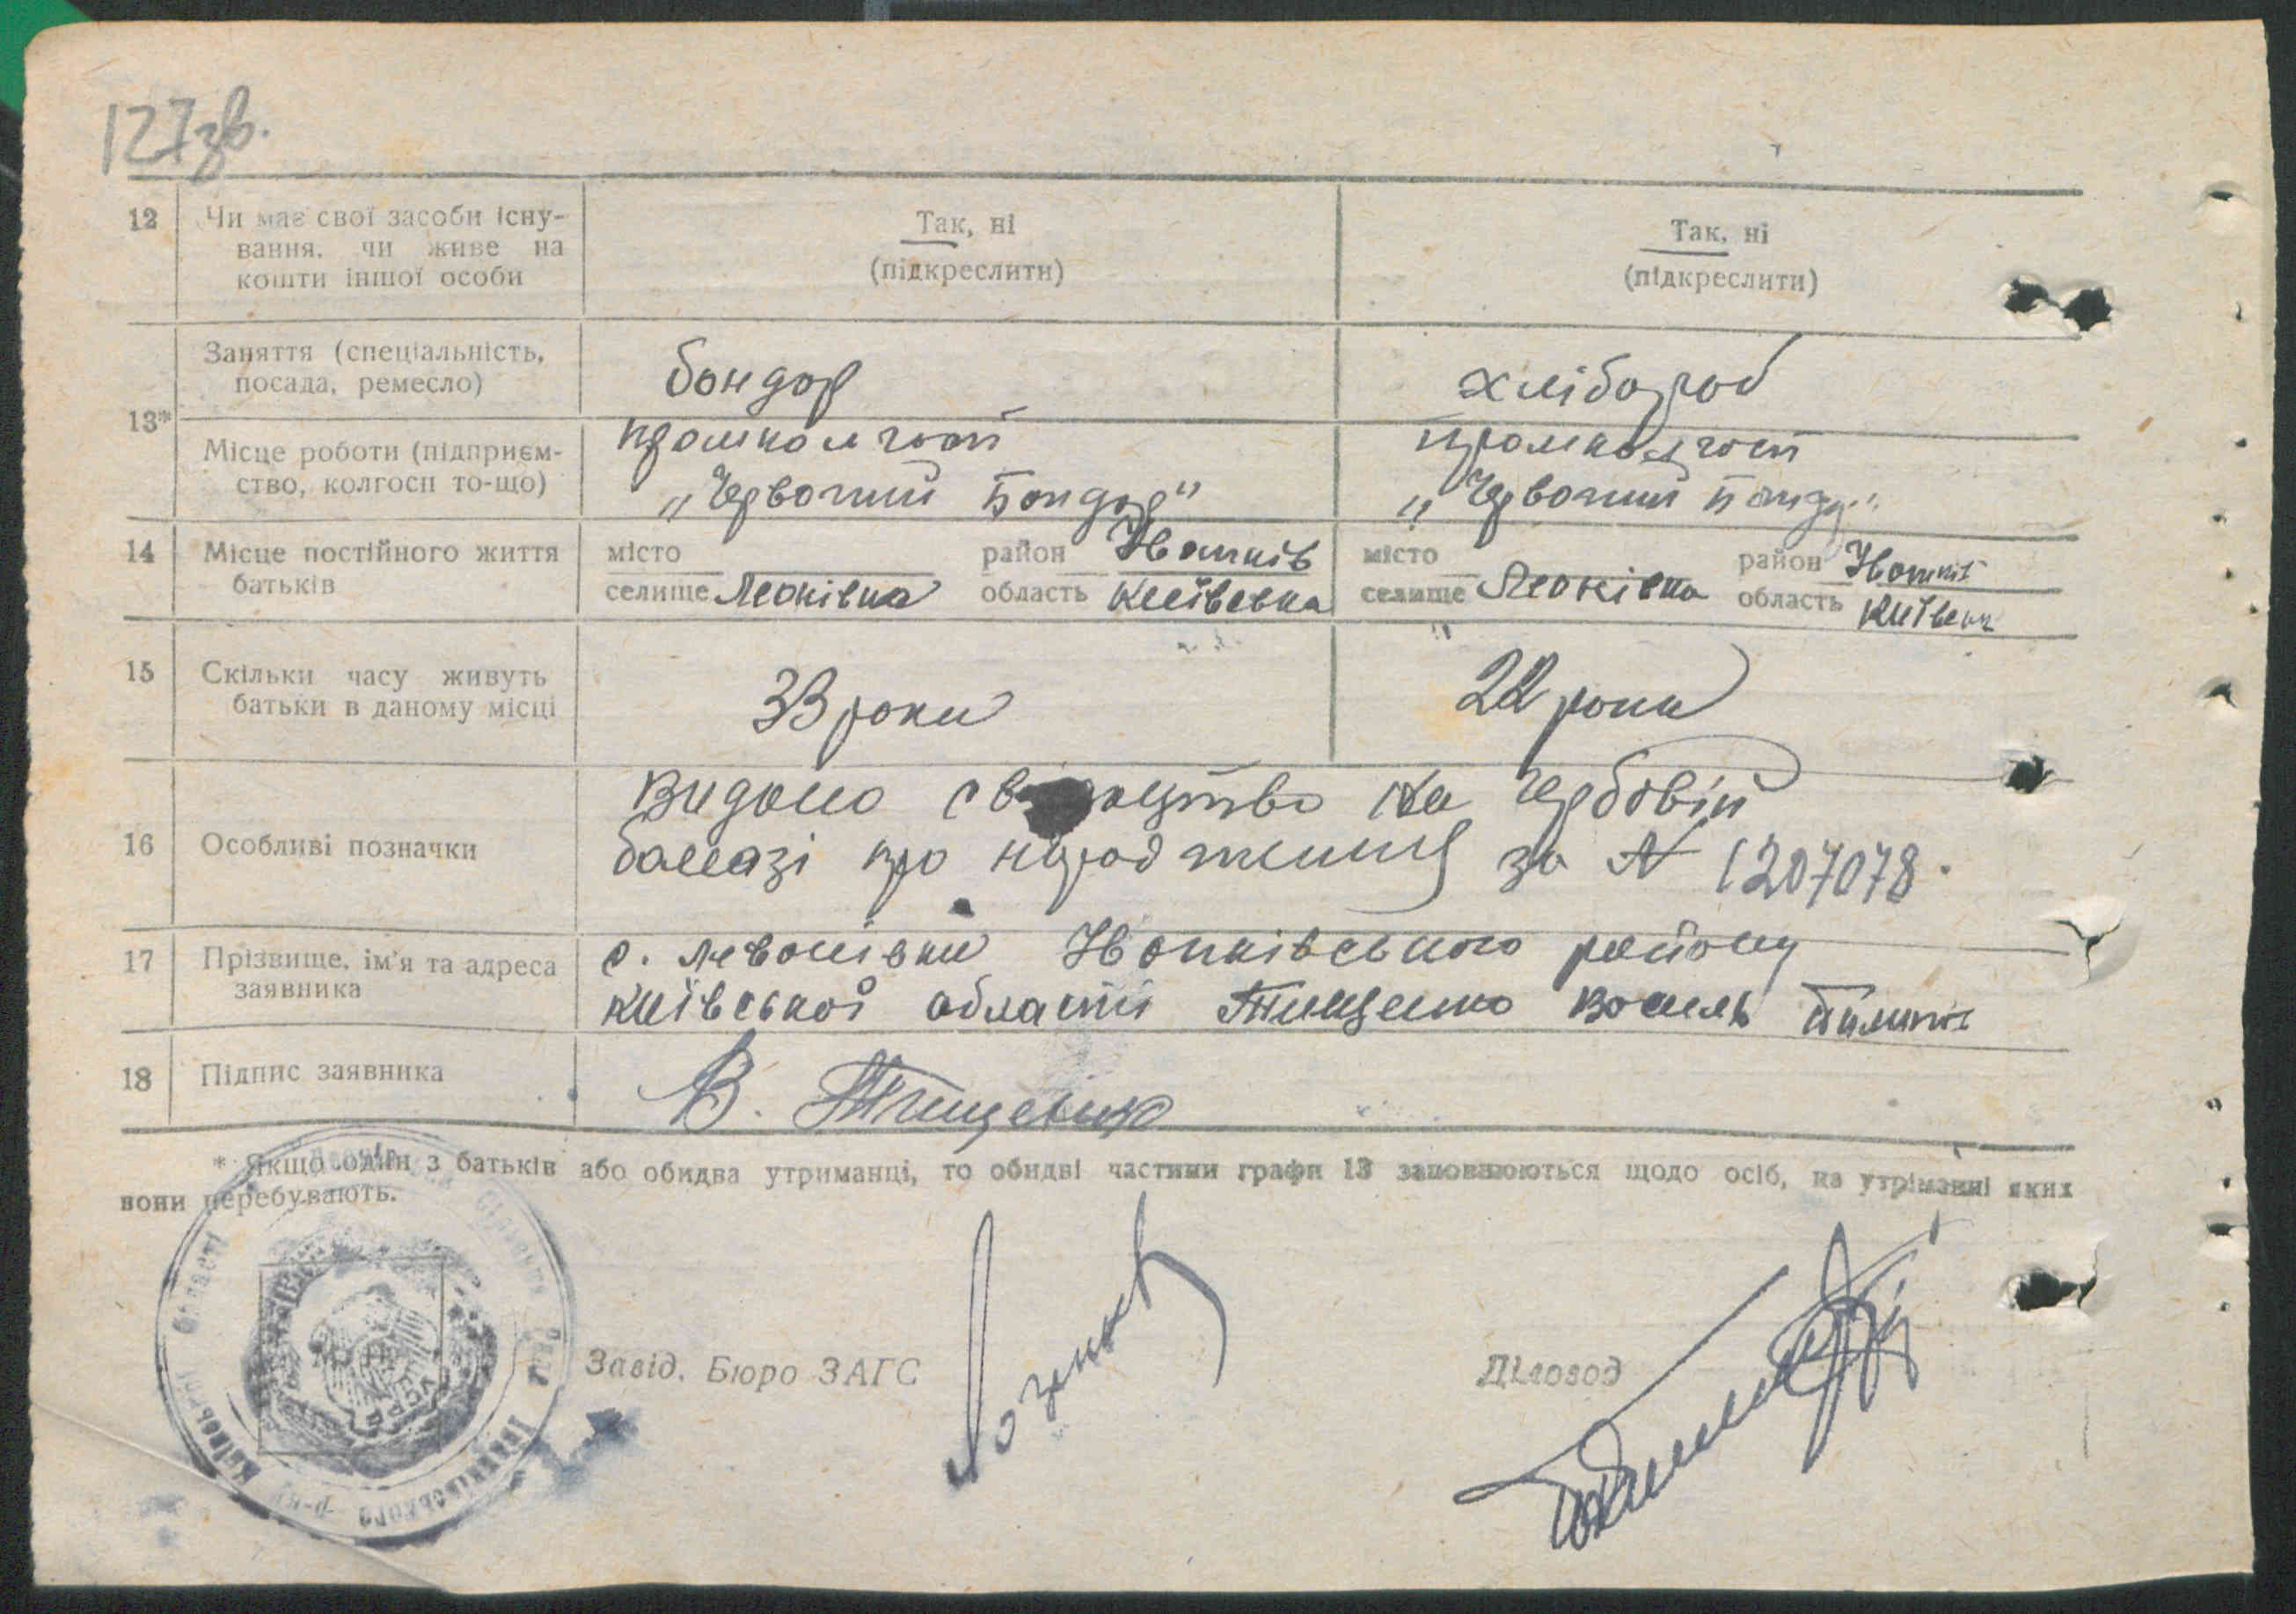 127зв.
12 Чи має свої засоби існу-
вання, чи живе на
кошти іншої особи
Так, ні
(підкреслити)
Так, ні
(підкреслити)
13*
Заняття (спеціальність,
посада, ремесло)
бондар
хлібороб
Місце роботи (підприєм-
ство, колгосп то-що)
промколгосп
„Червоний Бондар"
промколгосп
„Червоний
14 Місце постійного життя
батьків
місто
селище Леонівка
район Іванків
область Київська
місто
селище Леонівка
район
область
15 Скільки часу живуть
батьки в даному місці
33 роки
22 роки
16 Особливі позначки
видано на гербовій
бамазі про народження за № 1207078.
17 Прізвище, ім'я та адреса
заявника
с. Левонівки Іванківського району
Київської області Тищенко Василь
18 Підпис заявника
В. Тищенко
* Якщо один з батьків або обидва утриманці, то обидві частини графи 13 заповнюються щодо осіб, на утріманні яких
вони перебувають.
Завід. Бюро ЗАГС
Діловод